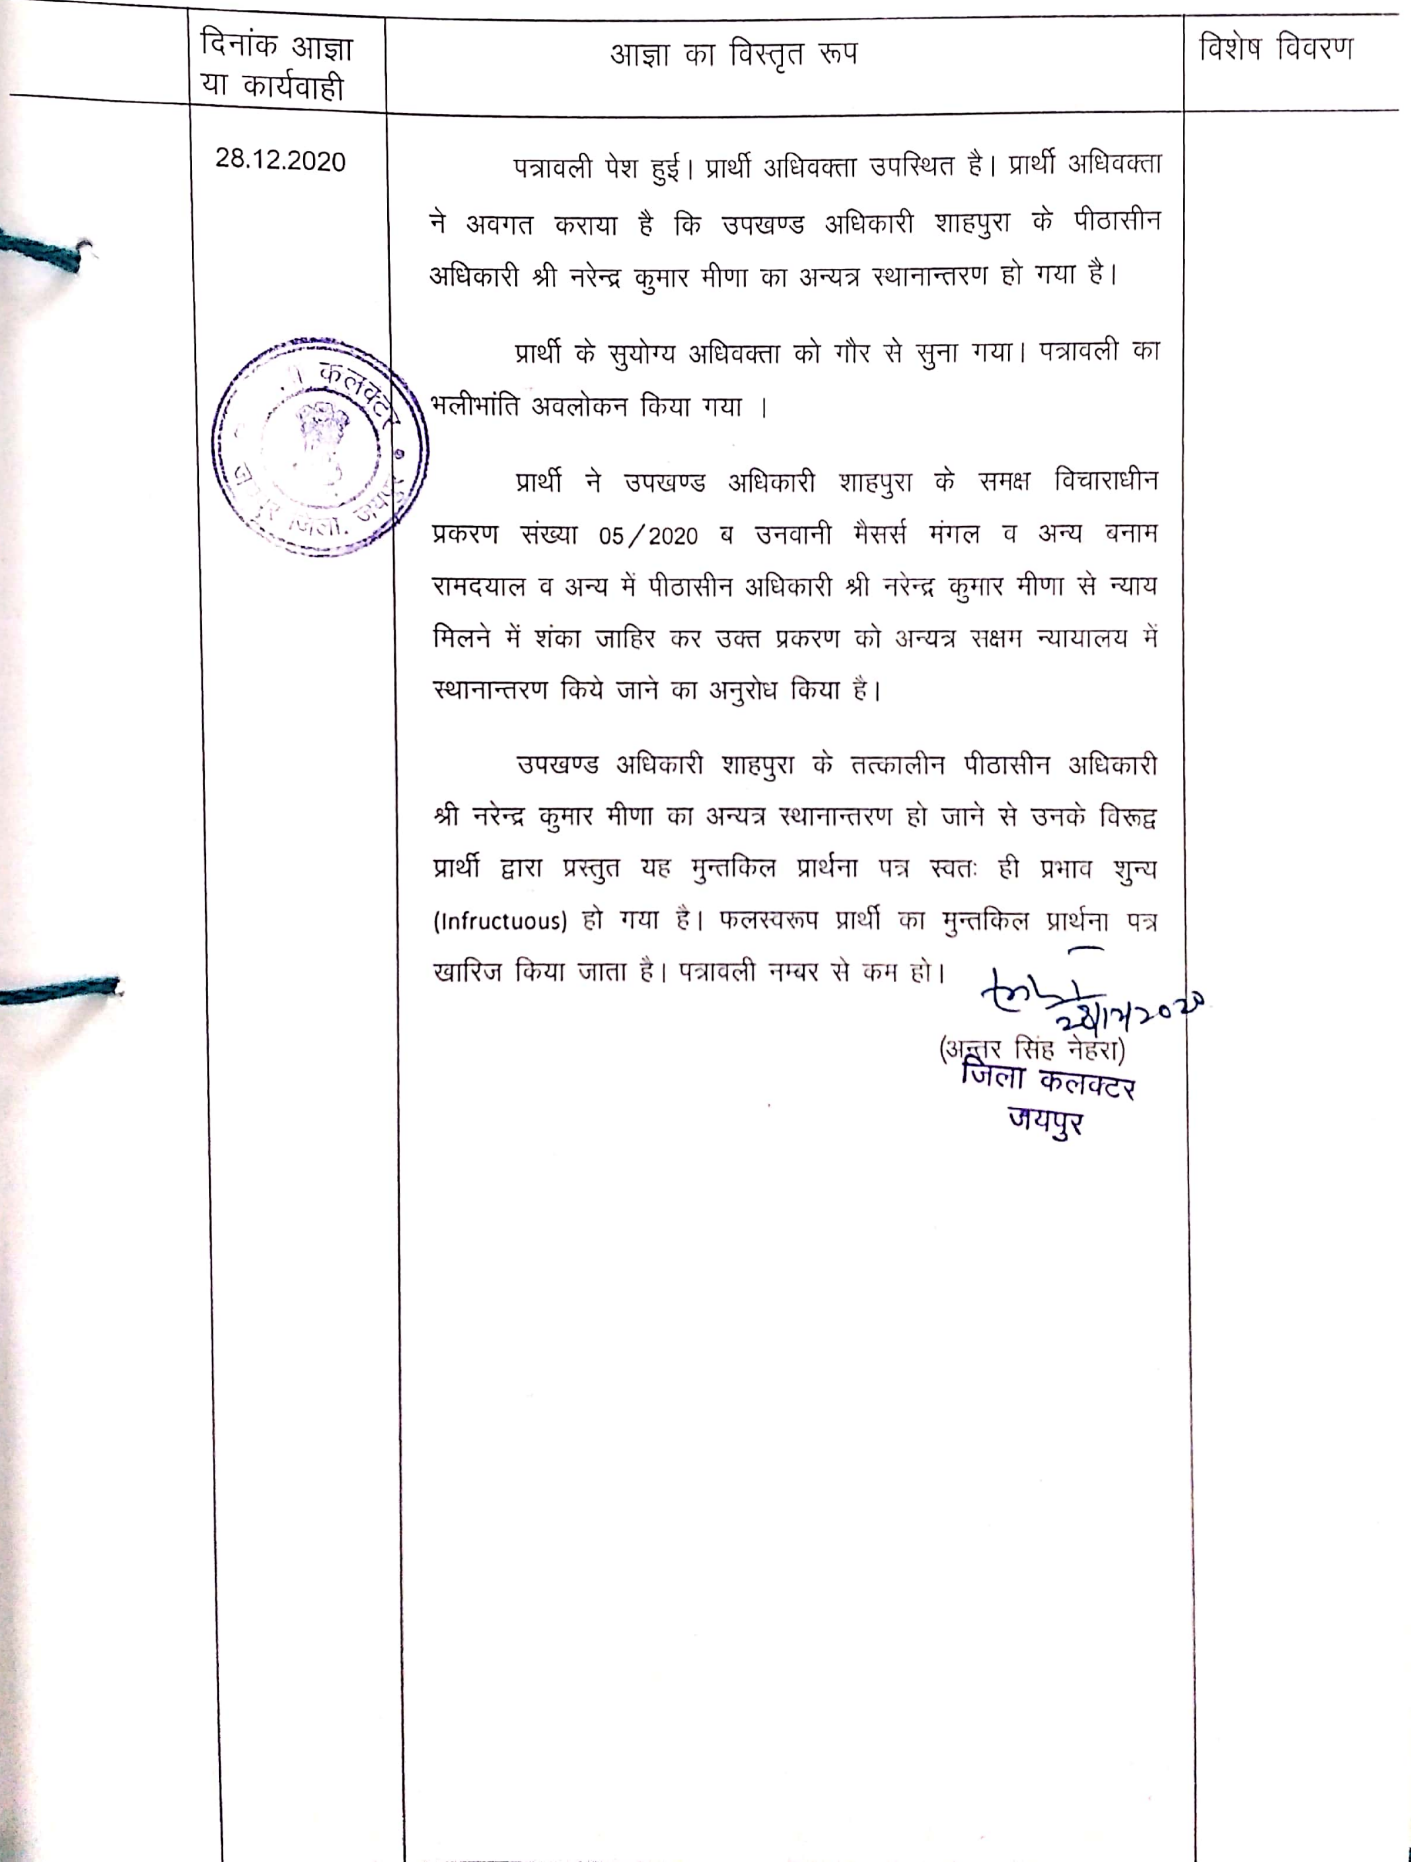 दिनांक आज्ञा
या कार्यवाही
आज्ञा का विस्तृत रूप
विशेष विवरण
28.12.2020
पत्रावली पेश हुई। प्रार्थी अधिवक्ता उपस्थित है। प्रार्थी अधिवक्ता
ने अवगत कराया है कि उपखण्ड अधिकारी शाहपुरा के पीठासीन
अधिकारी श्री नरेन्द्र कुमार मीणा का अन्यत्र स्थानान्तरण हो गया है।
प्रार्थी के सुयोग्य अधिवक्ता को गौर से सुना गया। पत्रावली का
भलीभांति अवलोकन किया गया ।
प्रार्थी ने उपखण्ड अधिकारी शाहपुरा के समक्ष विचाराधीन
प्रकरण संख्या 05/2020 ब उनवानी मैसर्स मंगल व अन्य बनाम
रामदयाल व अन्य में पीठासीन अधिकारी श्री नरेन्द्र कुमार मीणा से न्याय
मिलने में शंका जाहिर कर उक्त प्रकरण को अन्यत्र सक्षम न्यायालय में
स्थानान्तरण किये जाने का अनुरोध किया है।
उपखण्ड अधिकारी शाहपुरा के तत्कालीन पीठासीन अधिकारी
श्री नरेन्द्र कुमार मीणा का अन्यत्र स्थानान्तरण हो जाने से उनके विरूद्व
प्रार्थी द्वारा प्रस्तुत यह मुन्तकिल प्रार्थना पत्र स्वतः ही प्रभाव शुन्य
(Infructuous) हो गया है। फलस्वरूप प्रार्थी का मुन्तकिल प्रार्थना पत्र
खारिज किया जाता है। पत्रावली नम्बर से कम हो।
28/12/2020
(अन्तर सिंह नेहरा)
जिला कलक्टर
जयपुर
कलक्टर
जिला, जयपुर